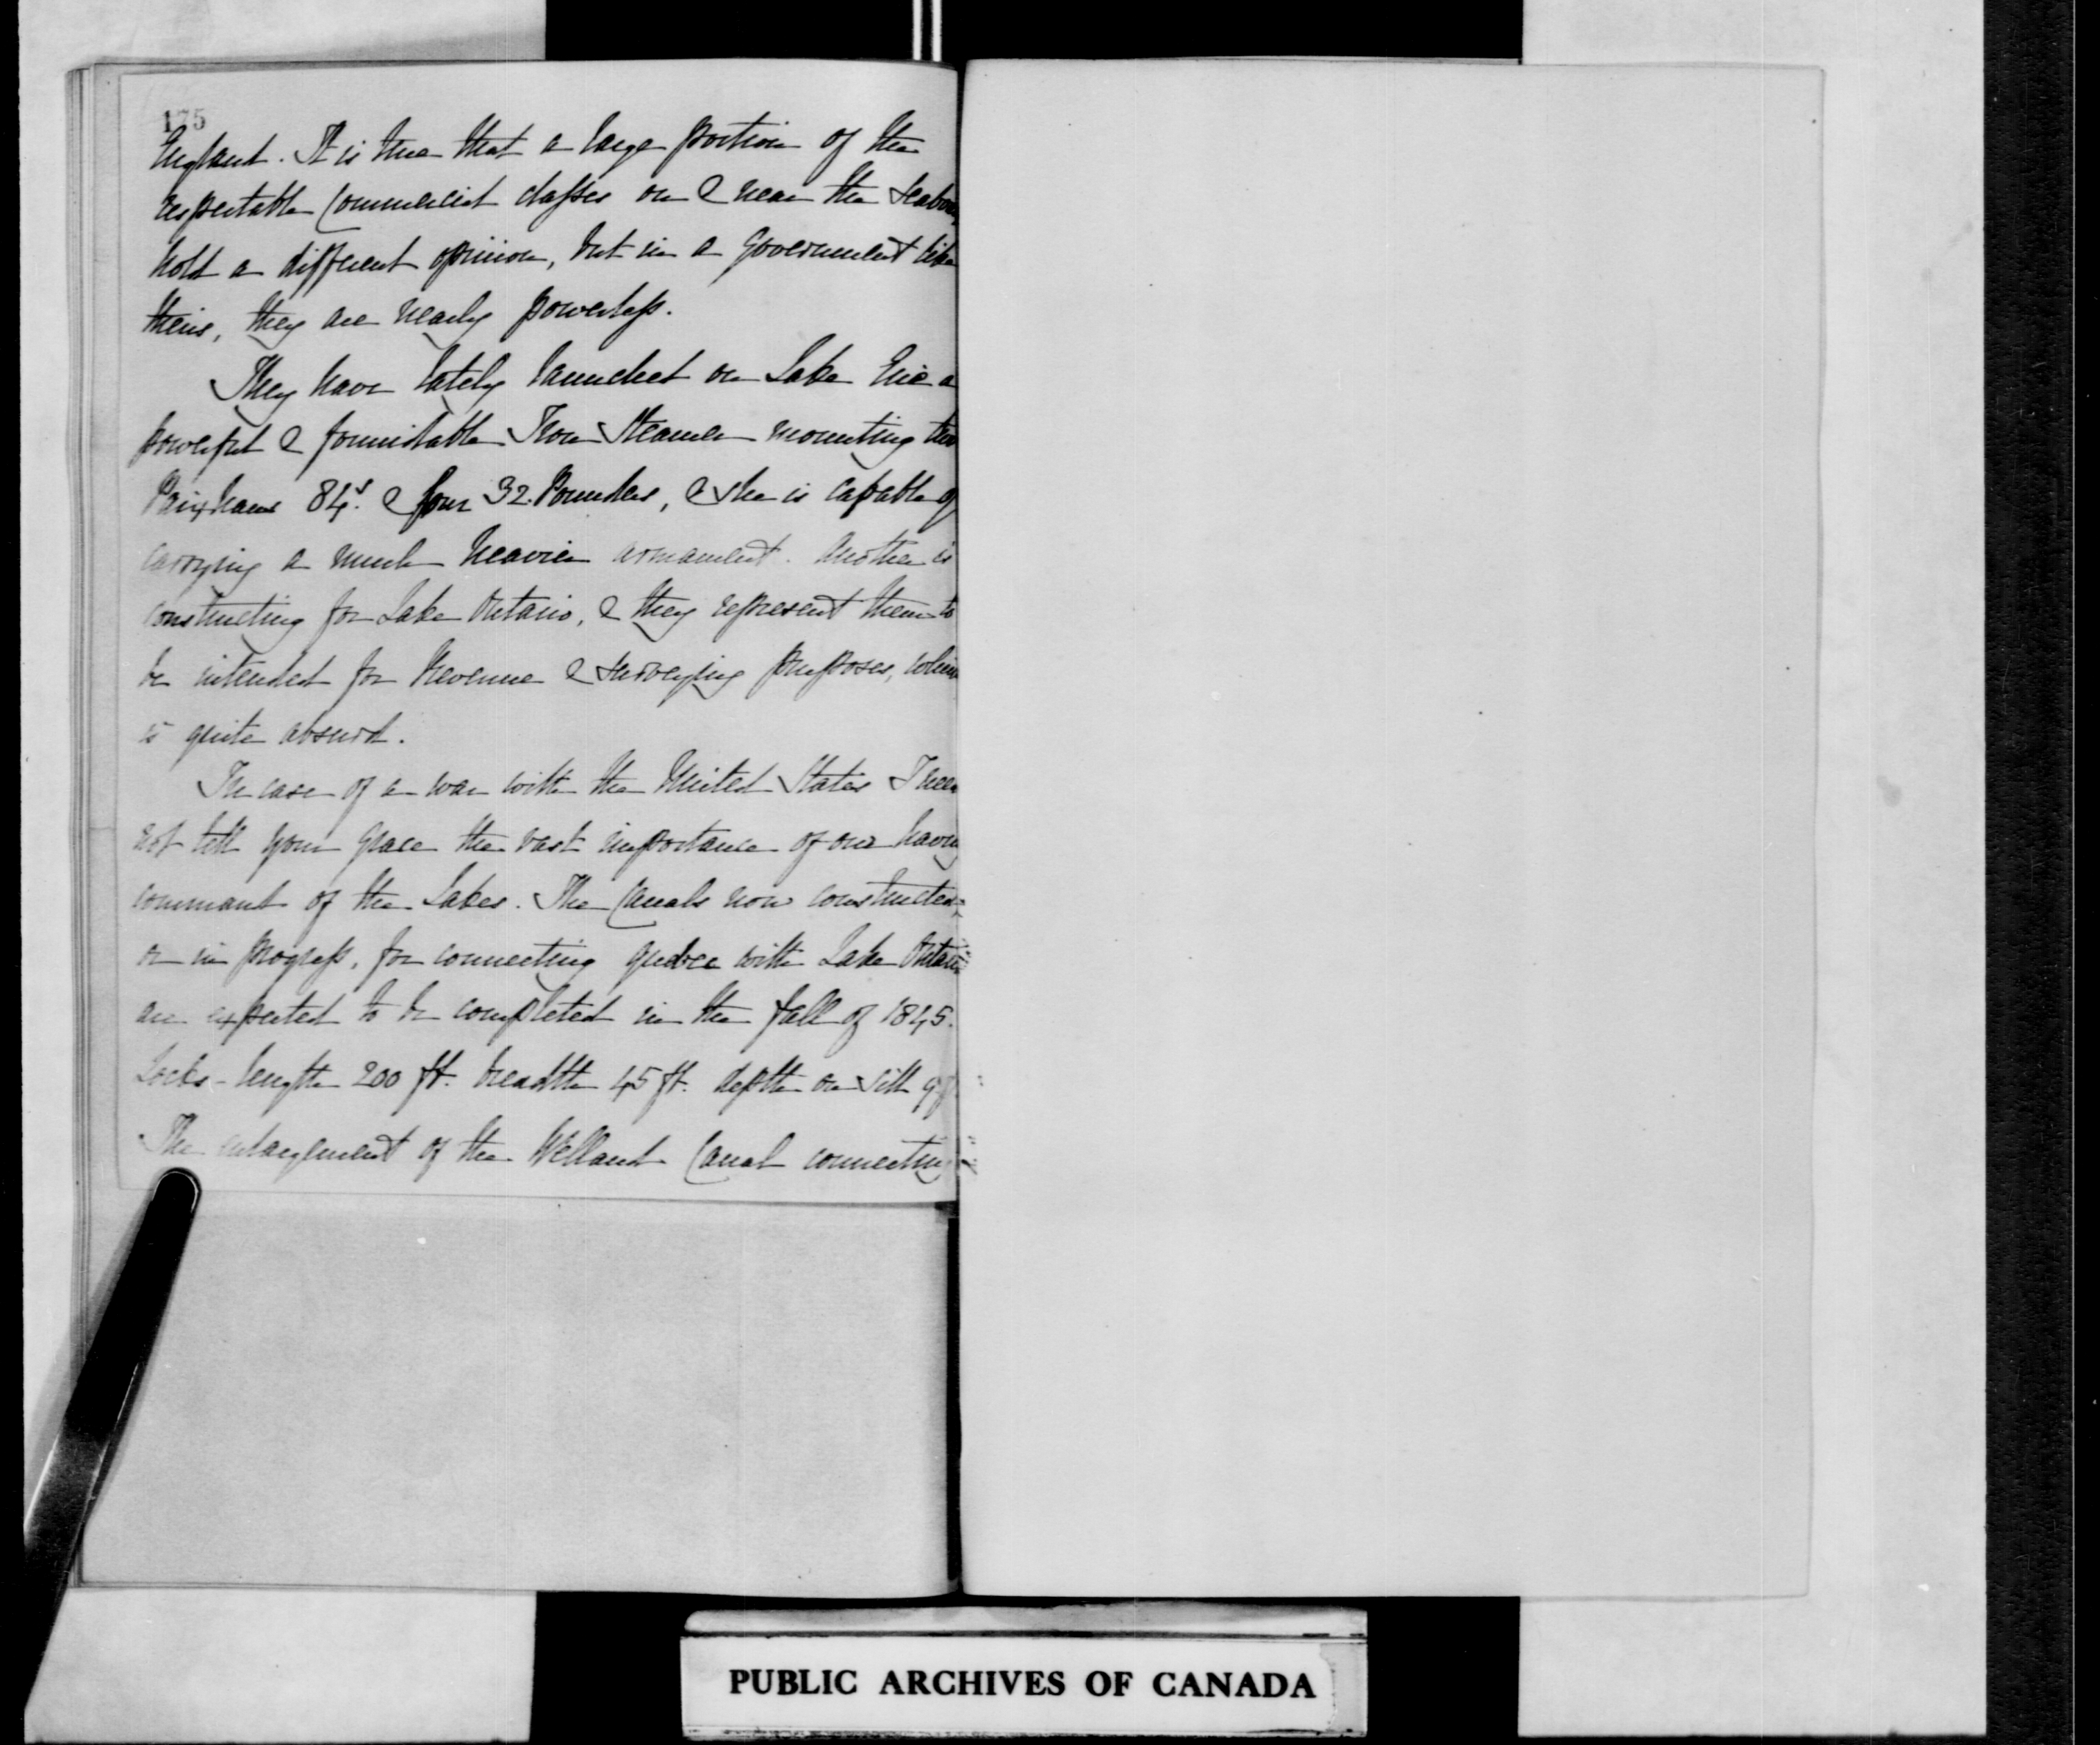 175
England. It is true that a large portion of the
respectable Commercial classes on & near the Seaboard
hold a different opinion, but in a Government like
theirs, they are nearly powerless.
They have lately launched on Lake Erie a
powerful & formidable Iron Steamer mounting two
Paixhans 84s. & four 32. Pounders, & she is capable of
carrying a much heavier armament. Another is
constructing for Lake Ontario, & they represent them to
be intended for Revenue & surveying purposes, which
is quite absurd.
In case of a war with the United States I need
not tell your Grace the vast importance of our having
command of the Lakes. The Canals now constructed,
or in progress, for connecting Quebec with Lake Ontario
are expected to be completed in the fall of 1845.
Locks - length 200 ft. breadth 45 ft. depth on Sill 9 f
The enlargement of the Welland Canal connecting
PUBLIC ARCHIVES OF CANADA